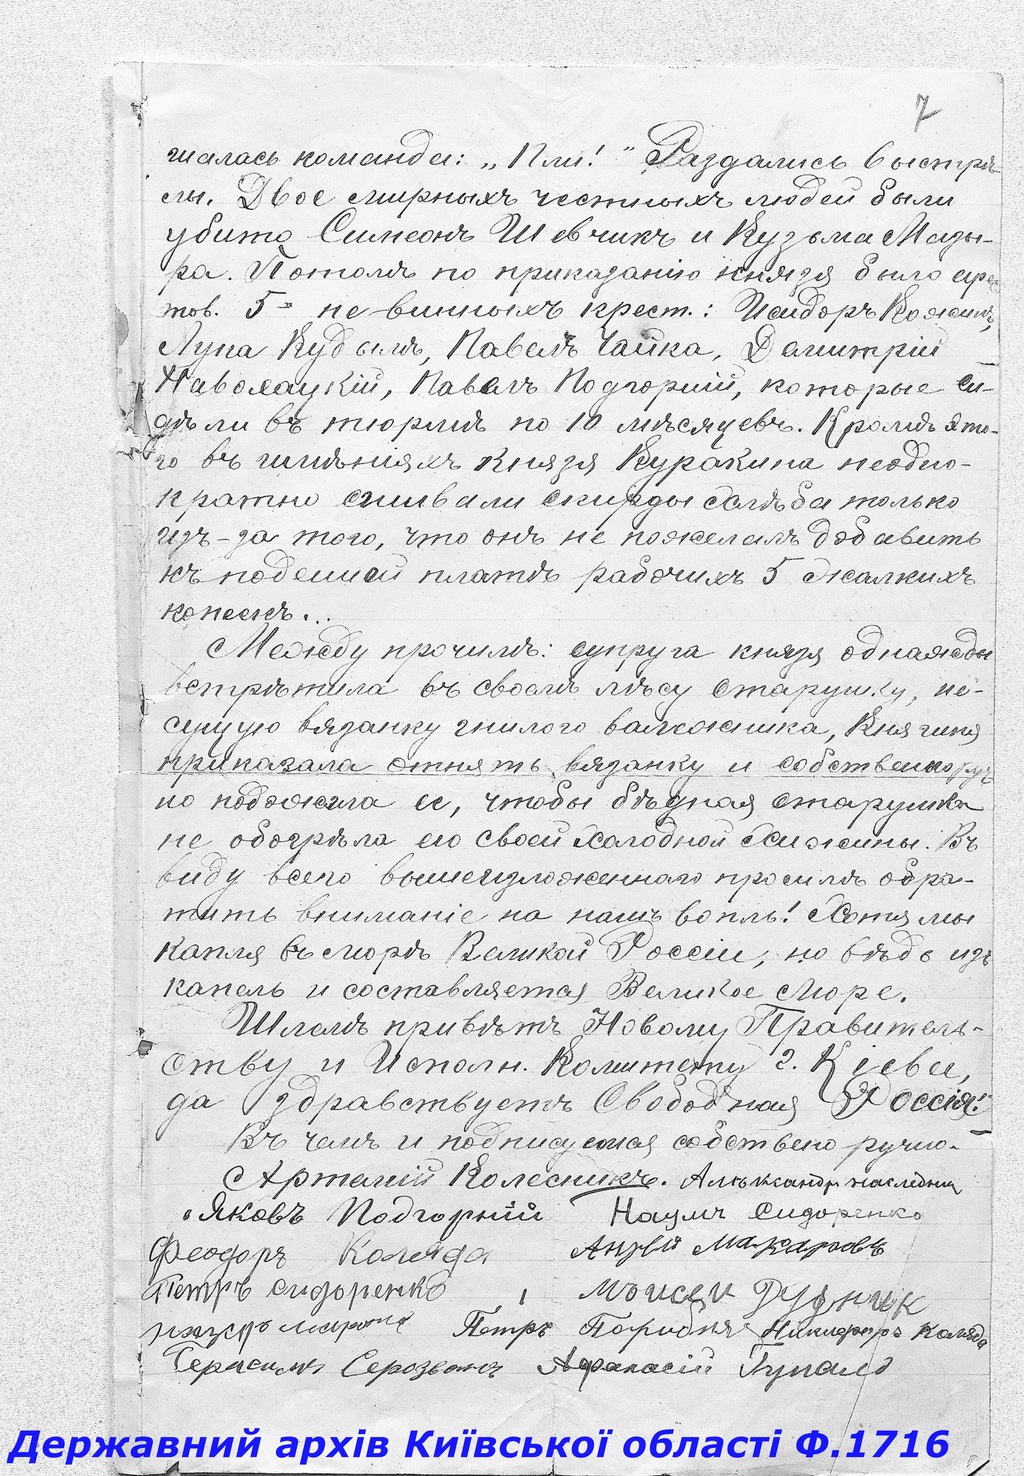 7
шалась команда: „Пли!“ Раздались выстрѣ-
лы. Двое мирныхъ честныхъ людей были
убито Симеонъ Шевчикъ и Кузьма Мазы-
ра. Потомъ по приказанію князя было арес
тов. 5 не винныхъ крест.: Исидоръ
Лука Кудымъ, Павелъ Чайка, Димитрій
Наволоцкій, Павелъ Подгорній, которые си-
дѣли въ тюрмѣ по 10 мѣсяцевъ. Кромѣ это-
го въ имѣніяхъ князя Куракина неодно-
кратно гнивали скирды хлѣба только
изъ-за того, что онъ не пожелалъ добавить
къ поденной платѣ рабочихъ 5 жалкихъ
копеекъ...
Между прочимъ: супруга князя однажды
встрѣтила въ своемъ лѣсу старушку, не-
сущую вязанку гнилого валежника, Княгиня
приказала отнять вязанку и собственоруч
но подожгла ее, чтобы бѣдная старушка
не обогрѣла ею своей холодной хижины. Въ
виду всего вышеизложеннаго просимъ обра-
тить вниманіе на нашъ вопль! Хотя мы
капля въ морѣ Великой Россіи, но вѣдь изъ
капель и составляется Великое море.
Шлемъ привѣтъ Новому Правитель-
ству и Исполн. Комитету г. Кіева,
да здравствуетъ Свободная Россія!
Въ чемъ и подписуемся собствено ручно.
Артемій Колесникъ. Александръ наследник
Яковъ Подгорній Наумъ Сидоренко
Феодоръ Коляда Андрей Макаровъ
Петръ сидоренко Моисей Рудник
Петръ Никифоръ Коляда
Герасимъ Афанасій
Державний архів Київської області Ф.1716